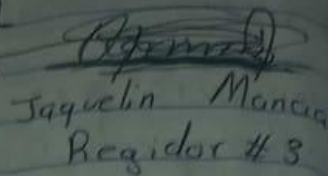 Jaquelin Mancia
Regidor # 3